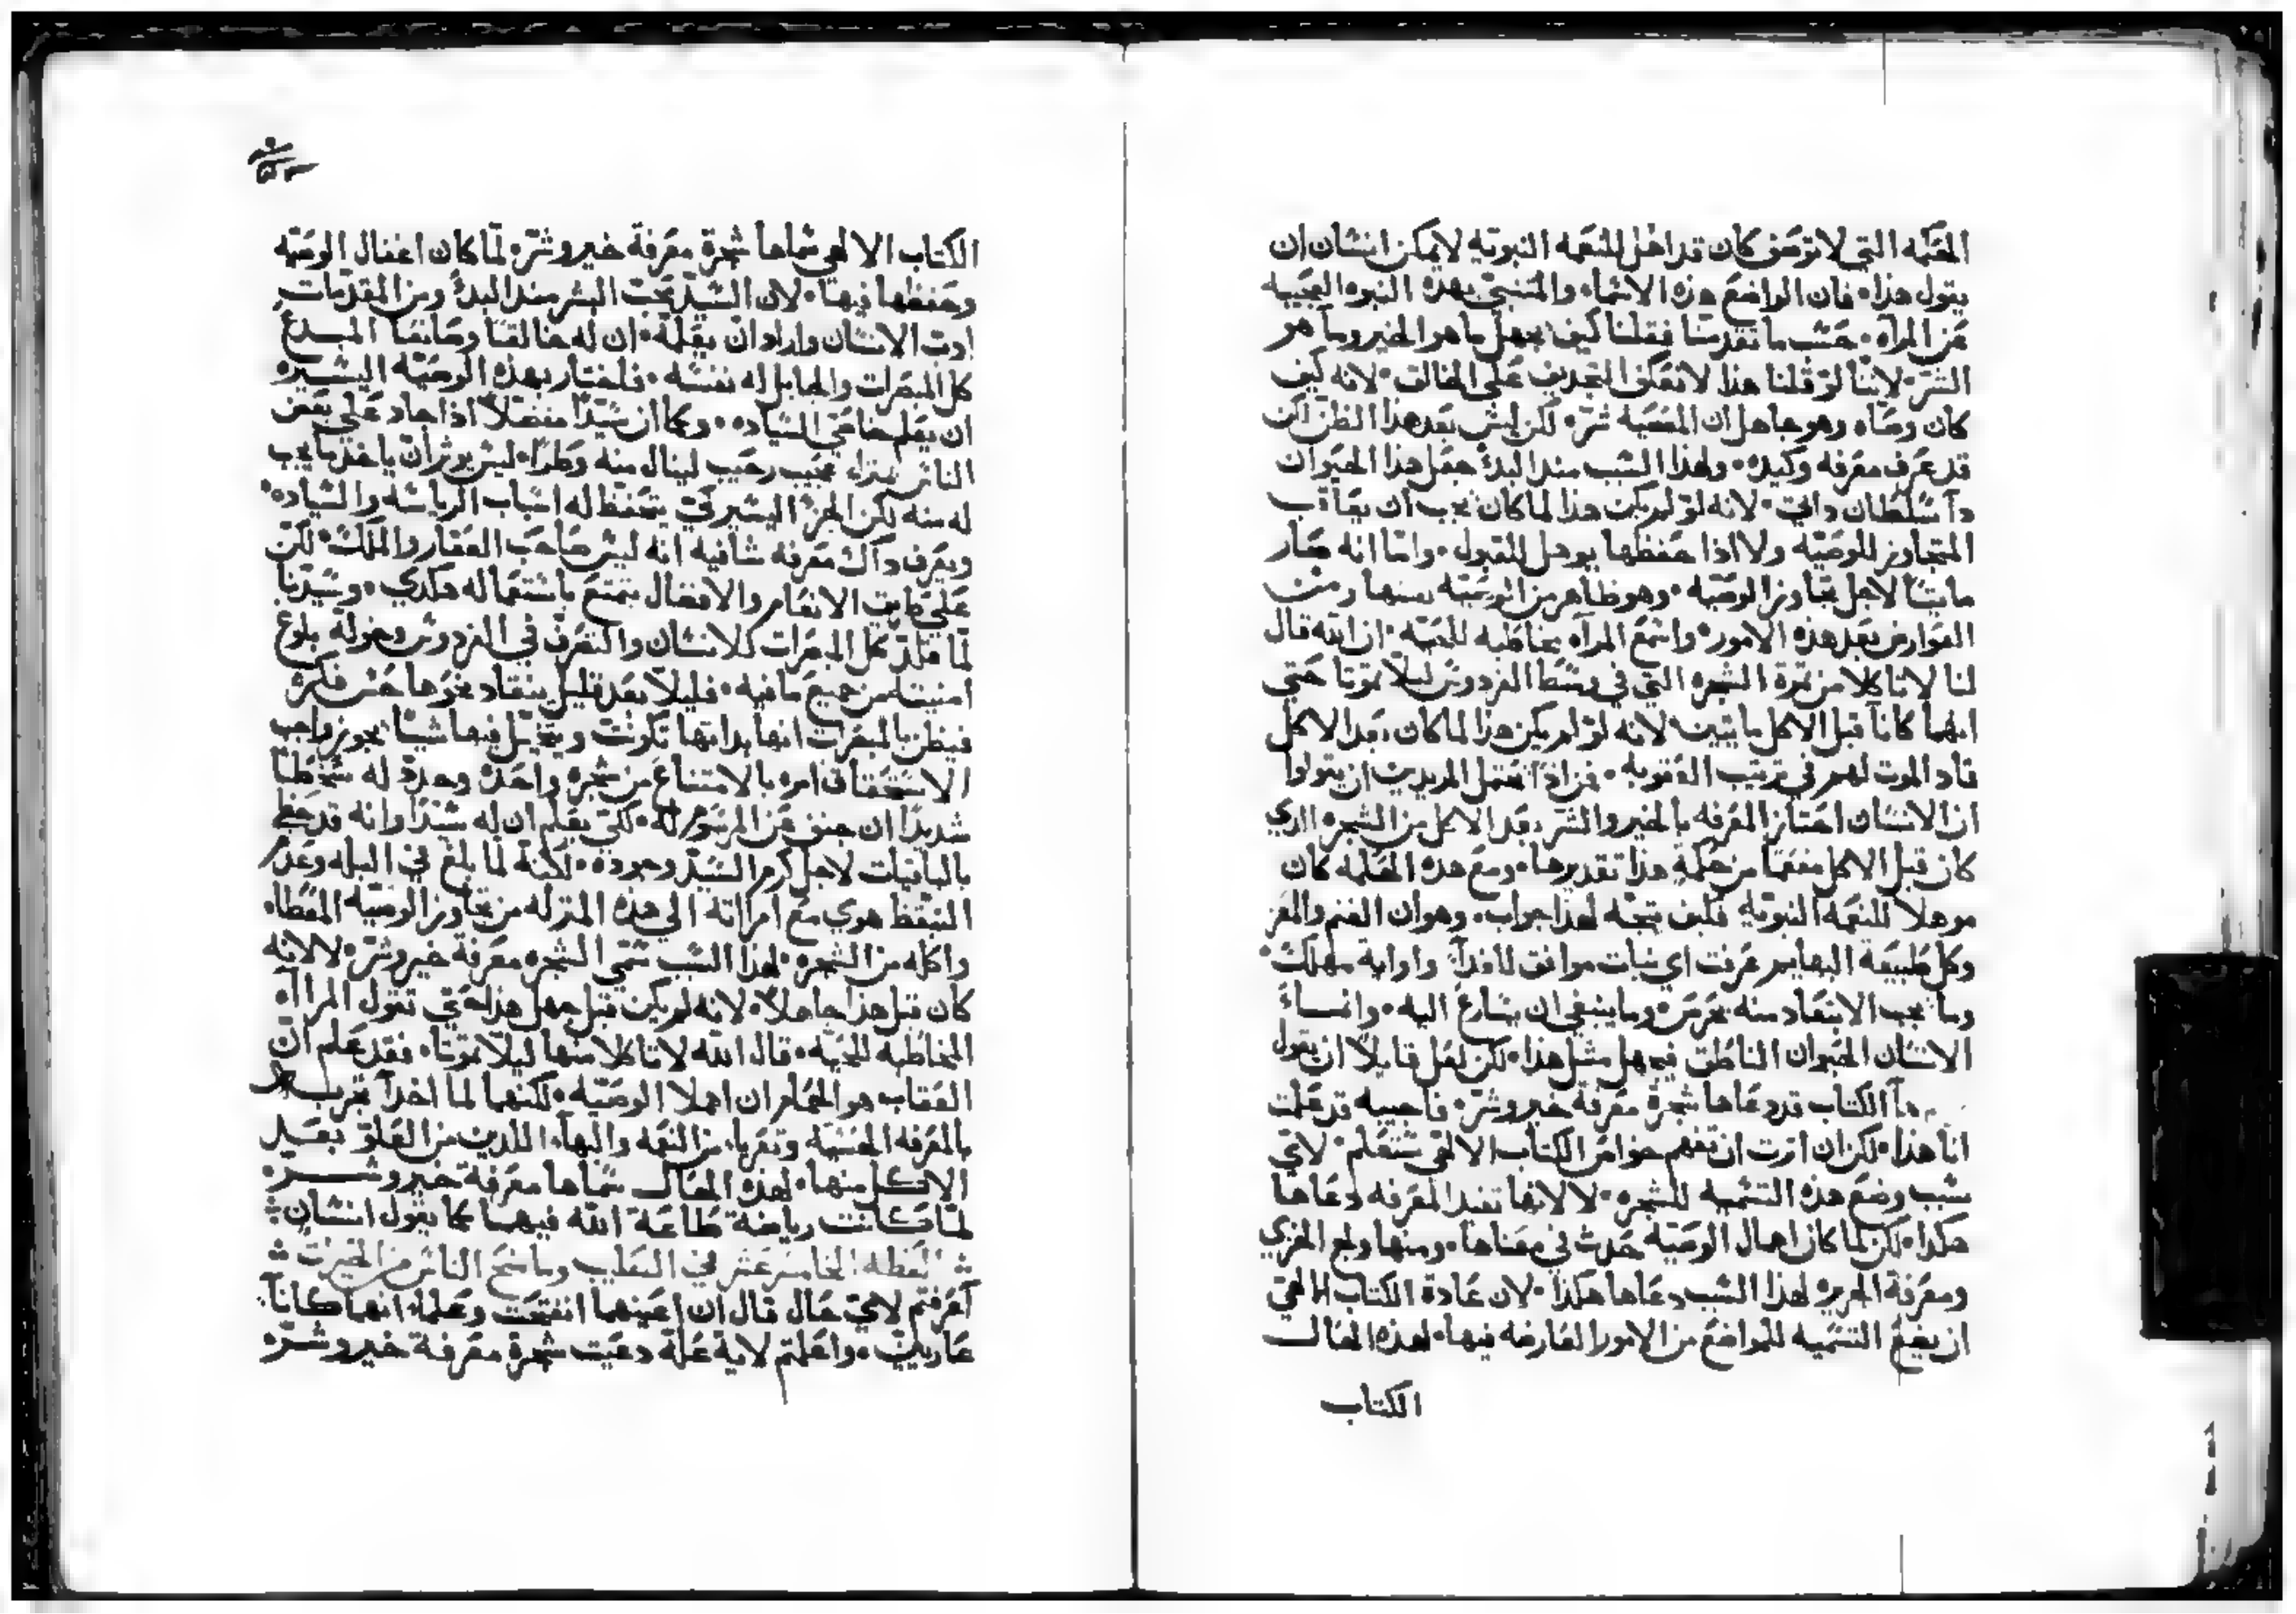 الحكمه التي لا توصف كان قد اهل للنعمه النبويه لا يمكن انسان ان
يقول هذا، فان الواضع هذه الاسماء والمتنبي بهذه النبوه العجيبه
عن المرآه، حسب ما تقدمنا فقلنا كيف يجهل ما هو الخير وما هو
الشر، لاننا لو قلنا هذا لانعكف التجديف على الخالق، لانه كيف
كان وصاه وهو جاهل ان المعصيه شر، لكن ليس بعد هذا الظن لكن
قد عرف معرفه وكيده، ولهذا السبب مند البدء جعل هذا الحيوان
دا سلطان داتي، لانه لو لم يكن هذا لما كان يجب ان يعاقب
المتجاوز للوصيه ولا اذا حفظها يوهل للقبول، واما انه صار
مايتا لاجل تجاوز الوصيه، وهو ظاهر من الوصيه نفسها ومن
العوارض بعد هذه الامور، واسمع المرآه مخاطبه للحيه، ان الله قال
لنا لا تاكلا من تمرة الشجره التي في وسط الفردوس ليلا تموتا حتي
انهما كانا قبل الاكل مايتين لانه لو لم يكن هذا لما كان بعد الاكل
قاد الموت لهم في ترتيب العقوبه، فمن اذا يحتمل المريدين ان يقولوا
ان الانسان احتاز المعرفه بالخير والشر بعد الاكل من الشجره الدي
كان قبل الاكل مفعما من حكمة هذا تقديرها، ومع هذه الحكمه كان
موهلا للنعمه النبويه فكيف يتجه لهذا جواب، وهو ان الغنم والمعز
وكل طبيعة البهايم عرفت اي نبات موافق للغدآ، وايما به مهلك،
وما يجب الابتعاد منه بحرص، وما ينبغي ان يسارع اليه، وانما
الانسان الحيوان الناطق فيجهل مثل هذا، لكن لعل قايلا ان يقول
ها الكتاب قد دعاها شجرة معرفة خير وشر، فاجيبه قد علمت
انا هذا، لكن ان اردت ان تفهم خواص الكتاب الالهي ستعلم، لاي
سبب وضع هذه التسميه للشجره، لا لانها تفيد المعرفه دعاها
هكدا، لكن لما كان اهمال الوصيه حدث في معناها، ومنها ولج الخزي
ومعرفة الجريره لهذا السبب دعاها هكذا، لان عادة الكتاب الالهي
ان يضع التسميه للمواضع من الامور العارضه فيها، لهذه الحال
الكتاب
الكتاب الالهي سماها شجرة معرفة خير وشر، لما كان اغفال الوصيه
وحفظها فيها، لان السيد يحب البشر مند البدء ومن المقدمات
ادب الانسان واراد ان يعلمه، ان له خالقا وصانعا المبدع
كل المبصرات والجابل له نفسه، فلختار بهذه الوصيه اليسيره
ان يعلم خاصي السياده، وكما ان سيدا مفضلا اذا جاد علي بعض
الناس بمنزل عجيب رحيب لينال منه وطرا، ليس يوثر ان ياخد ما يجب
له منه لكن الجزء اليسير كي يتحفظ له اسباب الرياسه والسياده،
ويعرف داك معرفه شافيه انه ليس صاحب العقار والملك، لكن
علي طريق الانعام والافضال يتمتع باستعماله هكدي، وسيدنا
لما ملك كل المبصرات للانسان والتصرف في الفردوس وخوله بلوغ
امنيته من جميع ما فيه، فليلا بعد قليل ينقاد نحوها حس فكره
فيظن بالمبصرات انها بداتها تكونت ويتخيل فيها شيا يجوز واجب
الاستحقاق امره بالامتناع من شجره واحده وحدد له سخطا
شديدا ان جنف عن المرسوم له، لكي يعلم ان له سيدا وانه قد حظي
بالباقيات لاجل كرم السيد وجوده، لكنه لما بلغ في البله وعدم
التيقظ هوي مع امراته الي هذه المنزله من تجاوز الوصيه المعطاه
واكله من الشجره، لهذا السبب سمي الشجره معرفة خير وشر، لا لانه
كان قبل هذا جاهلا، لانه لم يكن قبل جهل هذا حتي تقول المراه
المخاطبه للحيه، قال الله لا تاكلا منها ليلا تموتا، فقد علم ان
العقاب هو الحمام ان اهملا الوصيه، لكنهما لما اخدا تجربه
بالمعرفه الحسيه وتعريا، من النعمه والبهاء، اللدين من العلو بعد
الاكل منها، لهذه الحال سماها معرفة خير وشر
لما كانت رياضة طاعة الله فيهما كما يقول انسان
العظه الخامسه عشر في الصليب وما منح الناس من الخيرات
أعرفتم لاي حال قال ان اعينهما انفتحت وعلما، انهما كانا
عاريين، واعلمتم لاية علة دعيت شجرة معرفة خير وشر